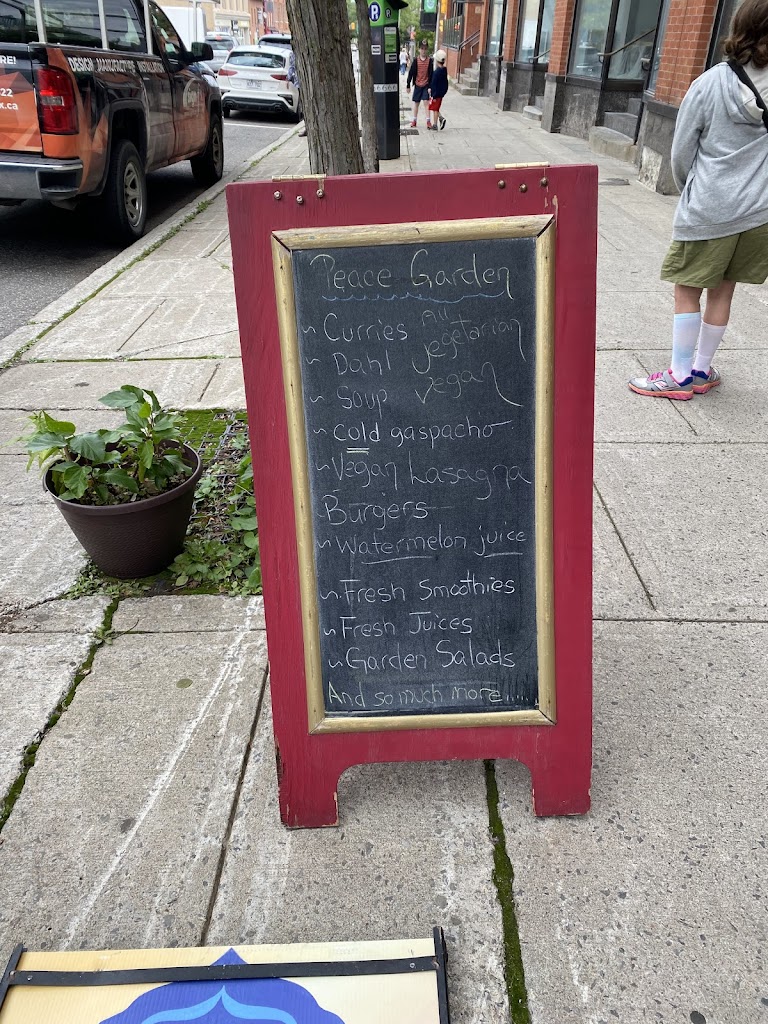 RE!
DESIGN MANUFACTURE INSTALLATION
22
x.ca
P
Peace Garden
~ Curries All
~ Dahl vegetarian
~ Soup vegan
~ cold gaspacho
~ Vegan Lasagna
Burgers
~ Watermelon juice
~ Fresh Smoothies
~ Fresh Juices
~ Garden Salads
And so much more.....